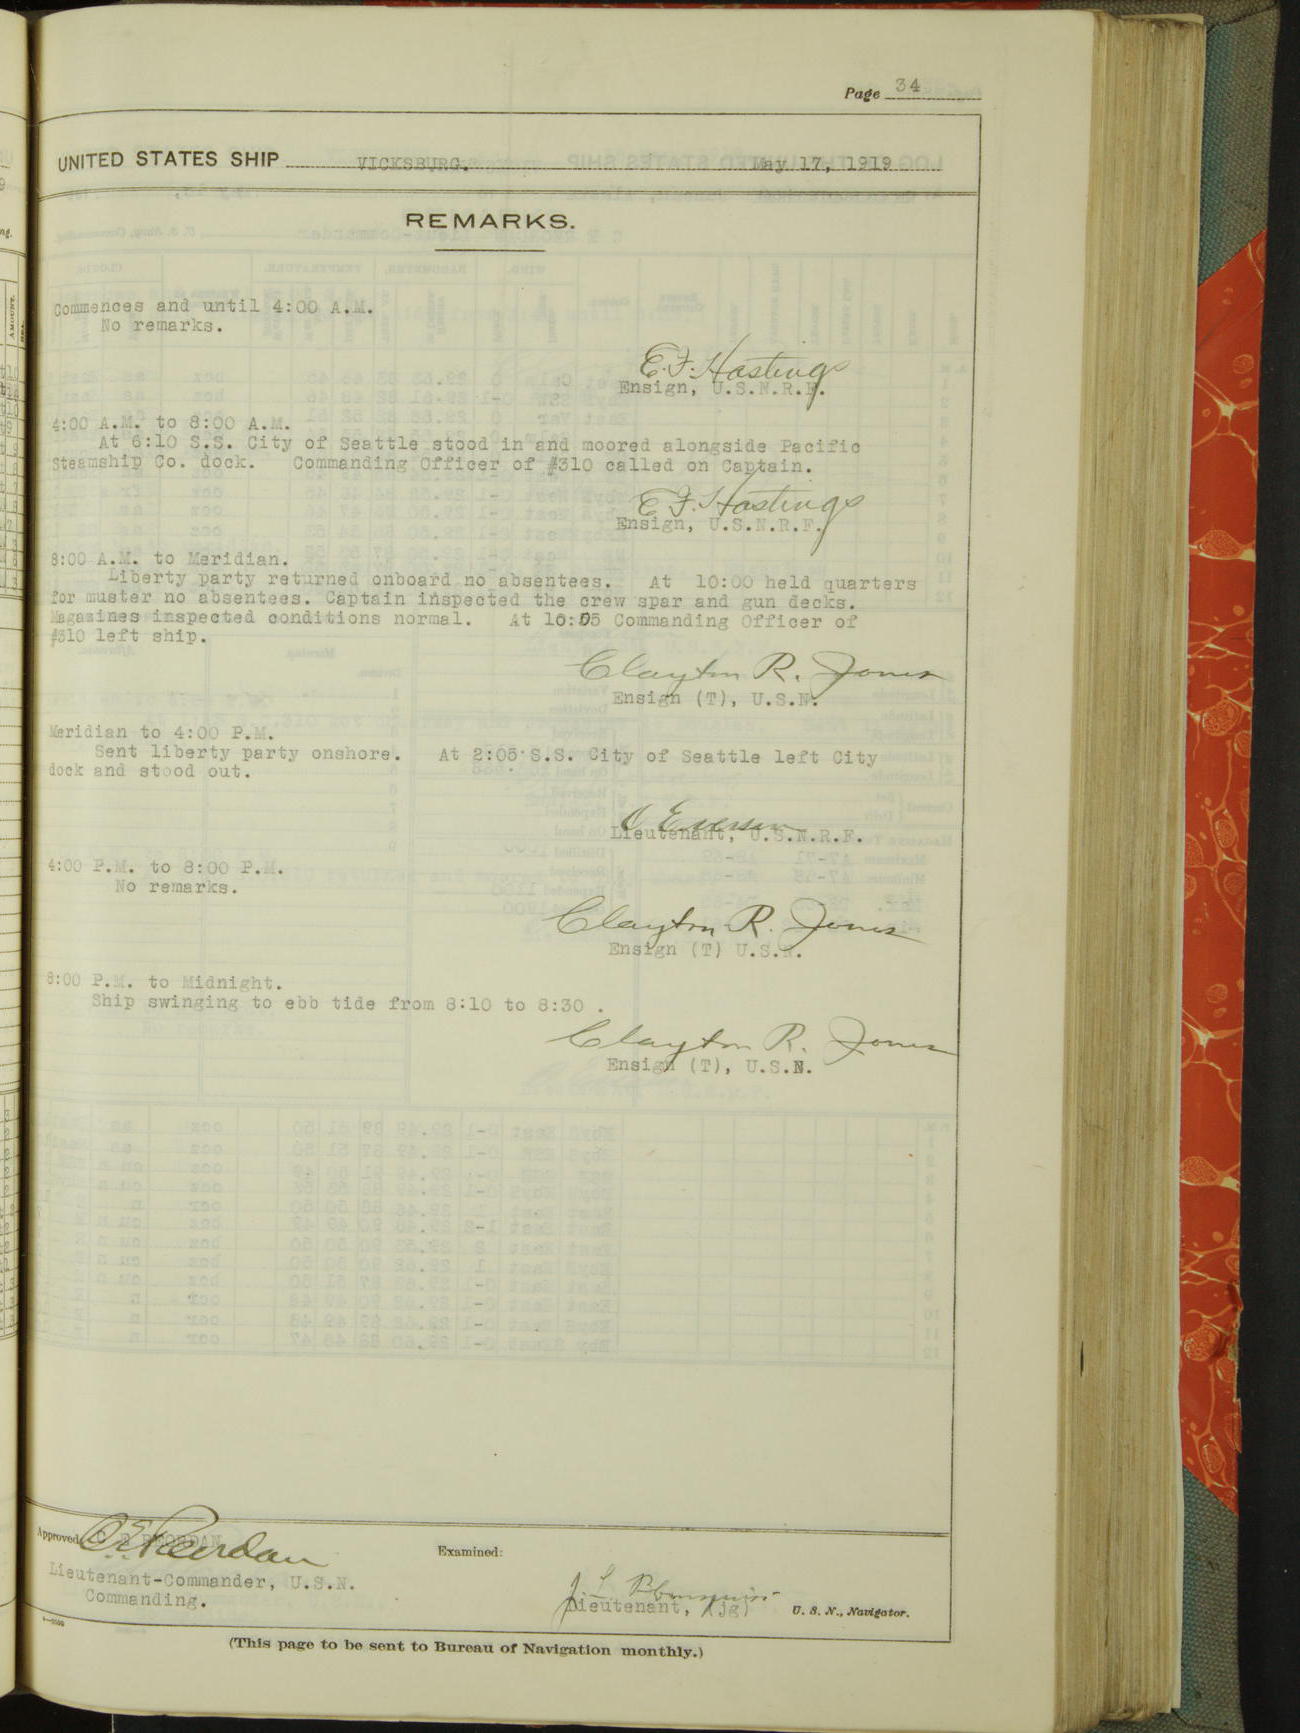 Page 34
UNITED STATES SHIP VICKSBURG. May 17, 1919
REMARKS.
Commences and until 4:00 A.M.
No remarks.
E. F. Hastings
Ensign, U.S.N.R.F.
4:00 A.M. to 8:00 A.M.
At 6:10 S.S. City of Seattle stood in and moored alongside Pacific
Steamship Co. dock. Commanding Officer of #310 called on Captain.
E. F. Hastings
Ensign, U.S.N.R.F.
8:00 A.M. to Meridian.
Liberty party returned onboard no absentees. At 10:00 held quarters
for muster no absentees. Captain inspected the crew spar and gun decks.
Magazines inspected conditions normal. At 10:05 Commanding Officer of
#310 left ship.
Clayton R. Jones
Ensign (T), U.S.N.
Meridian to 4:00 P.M.
Sent liberty party onshore. At 2:05 S.S. City of Seattle left City
dock and stood out.
Lieutenant, U.S.N.R.F.
4:00 P.M. to 8:00 P.M.
No remarks.
Clayton R. Jones
Ensign (T) U.S.N.
8:00 P.M. to Midnight.
Ship swinging to ebb tide from 8:10 to 8:30 .
Clayton R. Jones
Ensign (T), U.S.N.
Approved: C E REORDAN
C E Reordan
Lieutenant-Commander, U.S.N.
Commanding.
Examined:
Lieutenant, (jg) U. S. N., Navigator.
(This page to be sent to Bureau of Navigation monthly.)